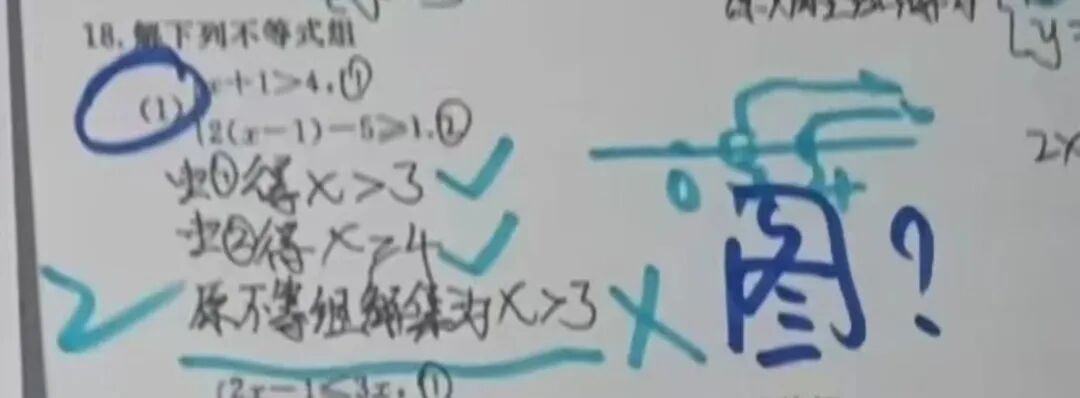 18.解下列不等式组
(1) x+1>4,①
2(x-1)-5≥1.②
由①得x>3
由②得x≥4
原不等组解集为x>3
图?
0 3 4
2x-1≤3x,①